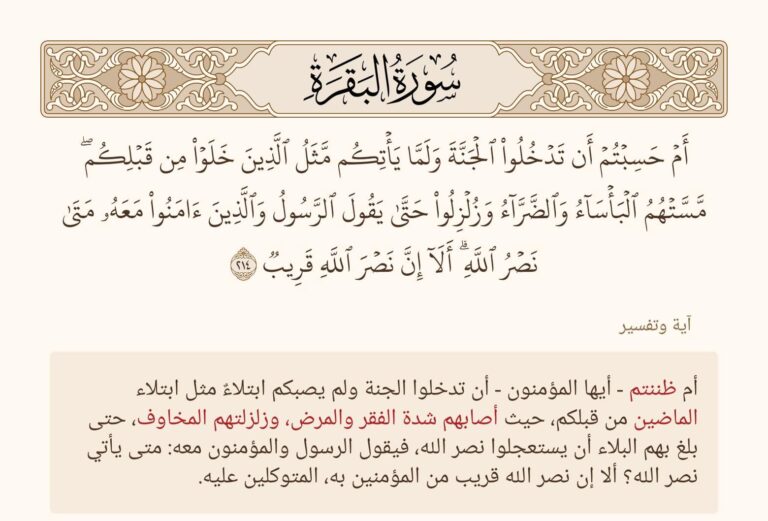 سُورَةُ البَقَرَةِ
أَمۡ حَسِبۡتُمۡ أَن تَدۡخُلُواْ ٱلۡجَنَّةَ وَلَمَّا يَأۡتِكُم مَّثَلُ ٱلَّذِينَ خَلَوۡاْ مِن قَبۡلِكُمۖ
مَّسَّتۡهُمُ ٱلۡبَأۡسَآءُ وَٱلضَّرَّآءُ وَزُلۡزِلُواْ حَتَّىٰ يَقُولَ ٱلرَّسُولُ وَٱلَّذِينَ ءَامَنُواْ مَعَهُۥ مَتَىٰ
نَصۡرُ ٱللَّهِۗ أَلَآ إِنَّ نَصۡرَ ٱللَّهِ قَرِيبٞ ٢١٤
آية وتفسير
أم ظننتم - أيها المؤمنون - أن تدخلوا الجنة ولم يصبكم ابتلاءٌ مثل ابتلاء
الماضين من قبلكم، حيث أصابهم شدة الفقر والمرض، وزلزلتهم المخاوف، حتى
بلغ بهم البلاء أن يستعجلوا نصر الله، فيقول الرسول والمؤمنون معه: متى يأتي
نصر الله؟ ألا إن نصر الله قريب من المؤمنين به، المتوكلين عليه.